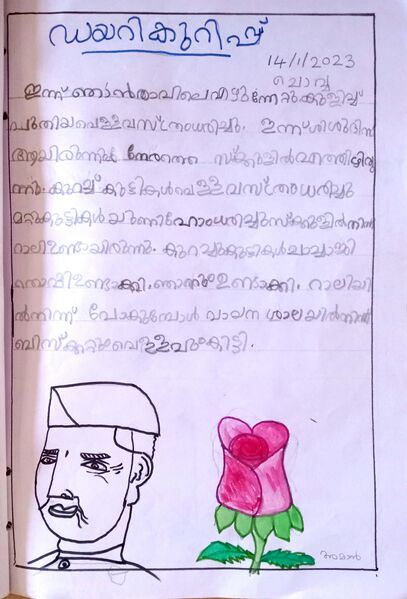 ഡയറികുറിപ്പ്
14/1/2023
ചൊവ്വ
ഇന്ന് ഞാൻ രാവിലെ എഴുന്നേറ്റു കുളിച്ച്
പുതിയ വെള്ള വസ്ത്രം ധരിച്ചു. ഇന്ന് ശിശുദിനം
ആയിരുന്നു നേരത്തെ സ്കൂളിൽ
ന്നു. കുറച്ച് കുട്ടികൾ വെള്ള വസ്ത്രം ധരിച്ചു
മറ്റു കുട്ടികൾ യുണിഫോം ധരിച്ചു സ്കൂളിൽ നിന്ന്
റാലി ഉണ്ടായിരുന്നു. കുറച്ചു കുട്ടികൾ ചാച്ചാജി
തൊപ്പി ഉണ്ടാക്കി. ഞാനും ഉണ്ടാക്കി. റാലിയി
ൽ നിന്ന് പോകുമ്പോൾ വായന ശാലയിൽ നിന്ന്
ബിസ്ക്കറ്റും വെള്ളവും കിട്ടി.
അമാൻ